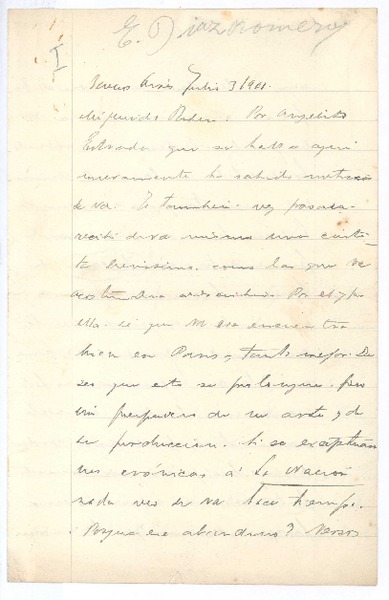 E. Diaz Romero
I
Buenos Aires Julio 3/901.
Mi querido Ruben: Por Angelito
Estrada que se halla aqui
nuevamente he sabido noticias
de Vd. Yo tambien
recibi de Vd. misma una carti-
ta brevissima, como las que Vd.
acostumbra Por el y por
ella sé que Vd. se encuentra
bien en Paris, tanto mejor. De
seo que esto se prolongue. Pero
sin perjuicio de su arte y de
su produccion. Si se exceptuan
sus crónicas á La Nacion
nada veo de Vd. hace tiempo.
¿Porque ese abandono? Versos